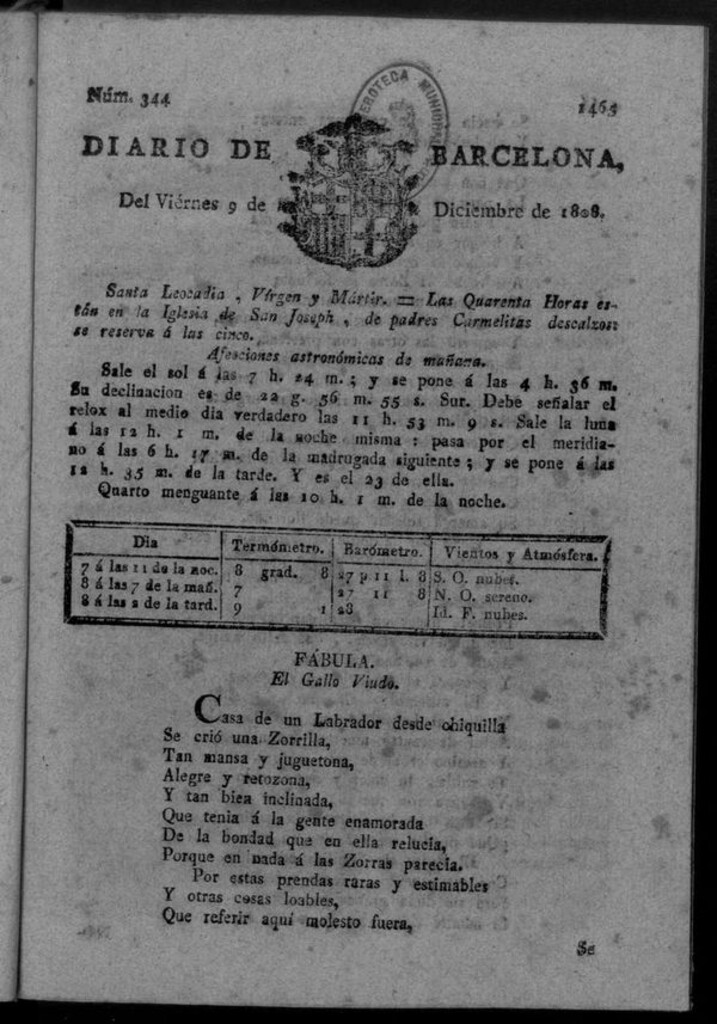 Núm. 344
1463
HEMEROTECA MUNICIPAL
DIARIO DE BARCELONA,
Del Viérnes 9 de Diciembre de 1808.
Santa Leocadia, Vírgen y Mártir. = Las Quarenta Horas es-
tán en la Iglesia de San Joseph, de padres Carmelitas descalzos:
se reserva á las cinco.
Afecciones astronómicas de mañana.
Sale el sol á las 7 h. 24 m.; y se pone á las 4 h. 36 m.
Su declinacion es de 22 g. 56 m. 55 s. Sur. Debe señalar el
relox al medio dia verdadero las 11 h. 53 m. 9 s. Sale la luna
á las 12 h. 1 m. de la noche misma: pasa por el meridia-
no á las 6 h. 17 m. de la madrugada siguiente; y se pone á las
12 h. 35 m. de la tarde. Y es el 23 de ella.
Quarto menguante á las 10 h. 1 m. de la noche.
Dia Termómetro. Barómetro. Vientos y Atmósfera.
7 á las 11 de la noc. 8 grad. 8 27 p 11 l. 8 S. O. nubes.
8 á las 7 de la mañ. 7 27 11 8 N. O. sereno.
8 á las 2 de la tard. 9 1 28 Id. F. nubes.
FÁBULA.
El Gallo Viudo.
Casa de un Labrador desde chiquilla
Se crió una Zorrilla,
Tan mansa y juguetona,
Alegre y retozona,
Y tan bien inclinada,
Que tenia á la gente enamorada
De la bondad que en ella relucia,
Porque en nada á las Zorras parecia.
Por estas prendas raras y estimables
Y otras cosas loables,
Que referir aquí molesto fuera,
Se